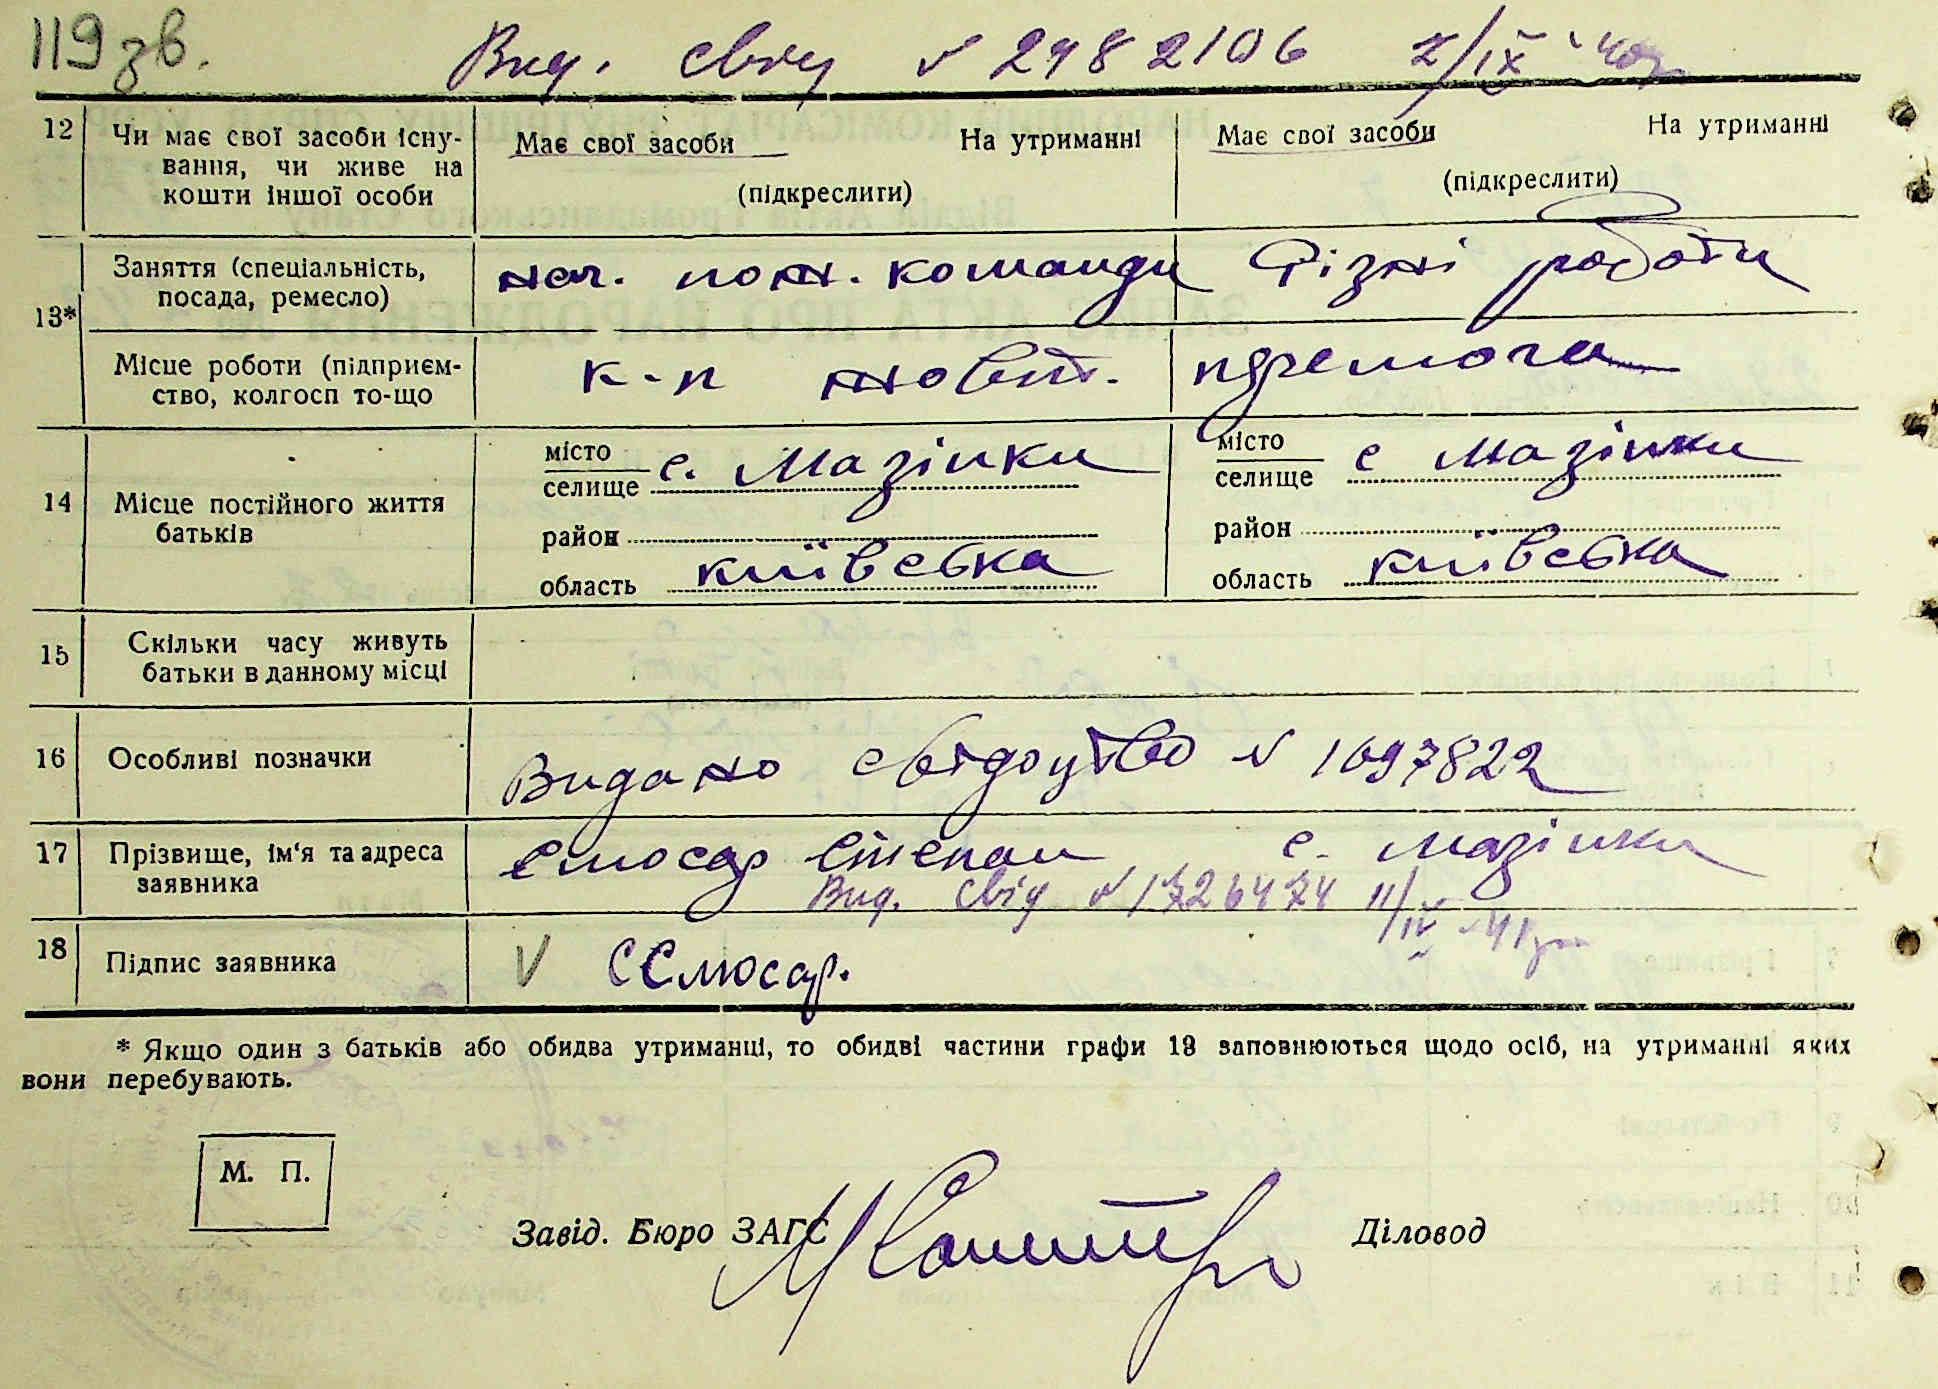 119 зв.
Вид. свід № 2982106
12 Чи має свої засоби існу-
вання, чи живе на
кошти іншої особи
Має свої засоби На утриманні
(підкреслити)
Має свої засоби На утриманні
(підкреслити)
13* Заняття (спеціальність,
посада, ремесло)
нач. пож. команди
Різні роботи
Місце роботи (підприєм-
ство, колгосп то-що
к-п жовт.
премога
14 Місце постійного життя
батьків
місто
селище с. Мазінки
район
область київська
місто
селище с Мазінки
район
область київська
15 Скільки часу живуть
батьки в данному місці
16 Особливі позначки
Видано свідоцтво № 1697822
17 Прізвище, ім'я та адреса
заявника
Слюсар Степан с. Мазінки
Вид. свід № 1726474 11/IV - 41р
18 Підпис заявника
V ССлюсар.
* Якщо один з батьків або обидва утриманці, то обидві частини графи 13 заповнюються щодо осіб, на утриманні яких
вони перебувають.
М. П.
Завід. Бюро ЗАГС Діловод